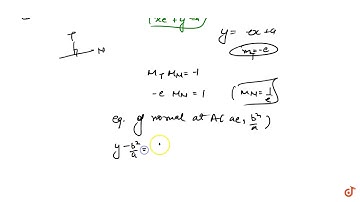 (xe + y = a)
y = -ex + a
m_T = -e
T
N
M_T M_N = -1
-e M_N = 1
(M_N = 1/e)
eq. of normal at A(ae, b²/a)
y - b²/a =